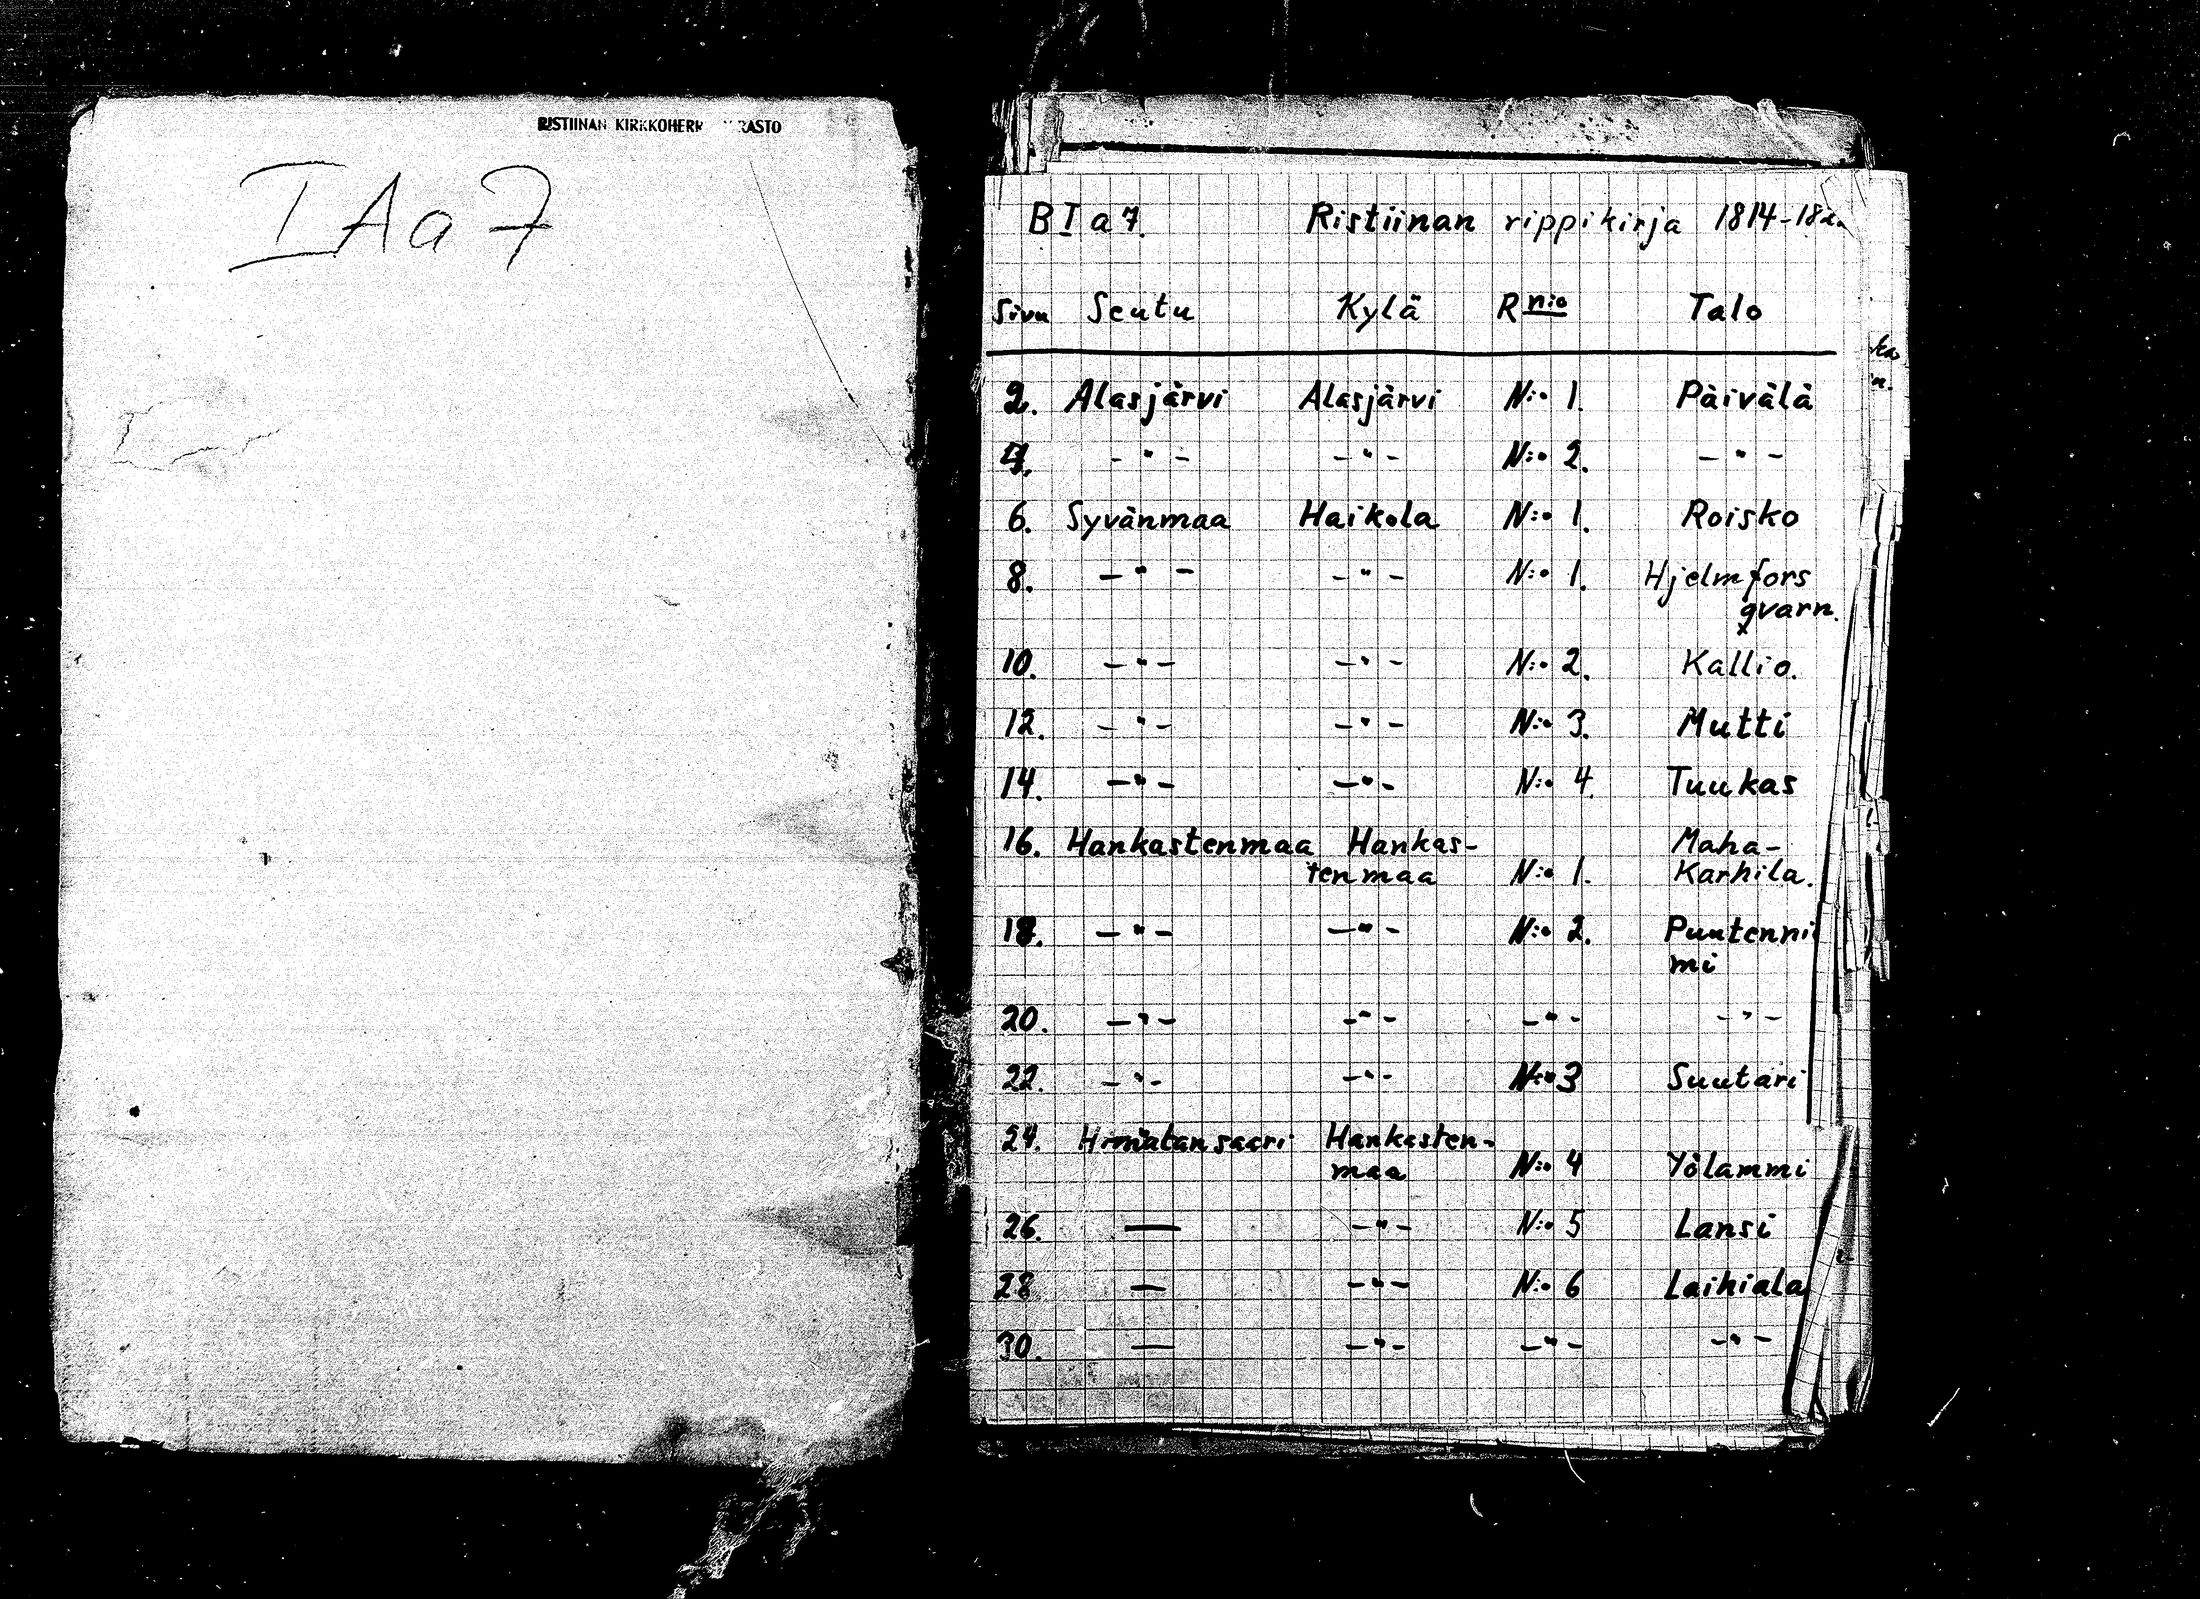 RISTIINAN KIRKKOHERR RASTO
I A a 7
B I a 7. Ristiinan rippikirja 1814-182
Sivu Seutu Kylä R nio Talo
2. Alasjärvi Alasjärvi N:o 1. Päivälä
4. -"- -"- N:o 2. -"-
6. Syvänmaa Haikola N:o 1. Roisko
8. -"- -"- N:o 1. Hjelmfors
qvarn.
x
10. -"- -"- N:o 2. Kallio.
12. -"- -"- N:o 3. Mutti
14. -"- -"- N:o 4. Tuukas
16. Hankastenmaa Hankas- Maha-
tenmaa N:o 1. Karhila.
18. -"- -"- N:o 2. Puutenni
mi
20. -"- -"- -"- -"-
22. -"- -"- N:o 3 Suutari
24. Hankasten-
maa N:o 4 Yölammi
26. — -"- N:o 5 Lansi
28 — -"- N:o 6 Laihiala
30. — -"- -"- -"-